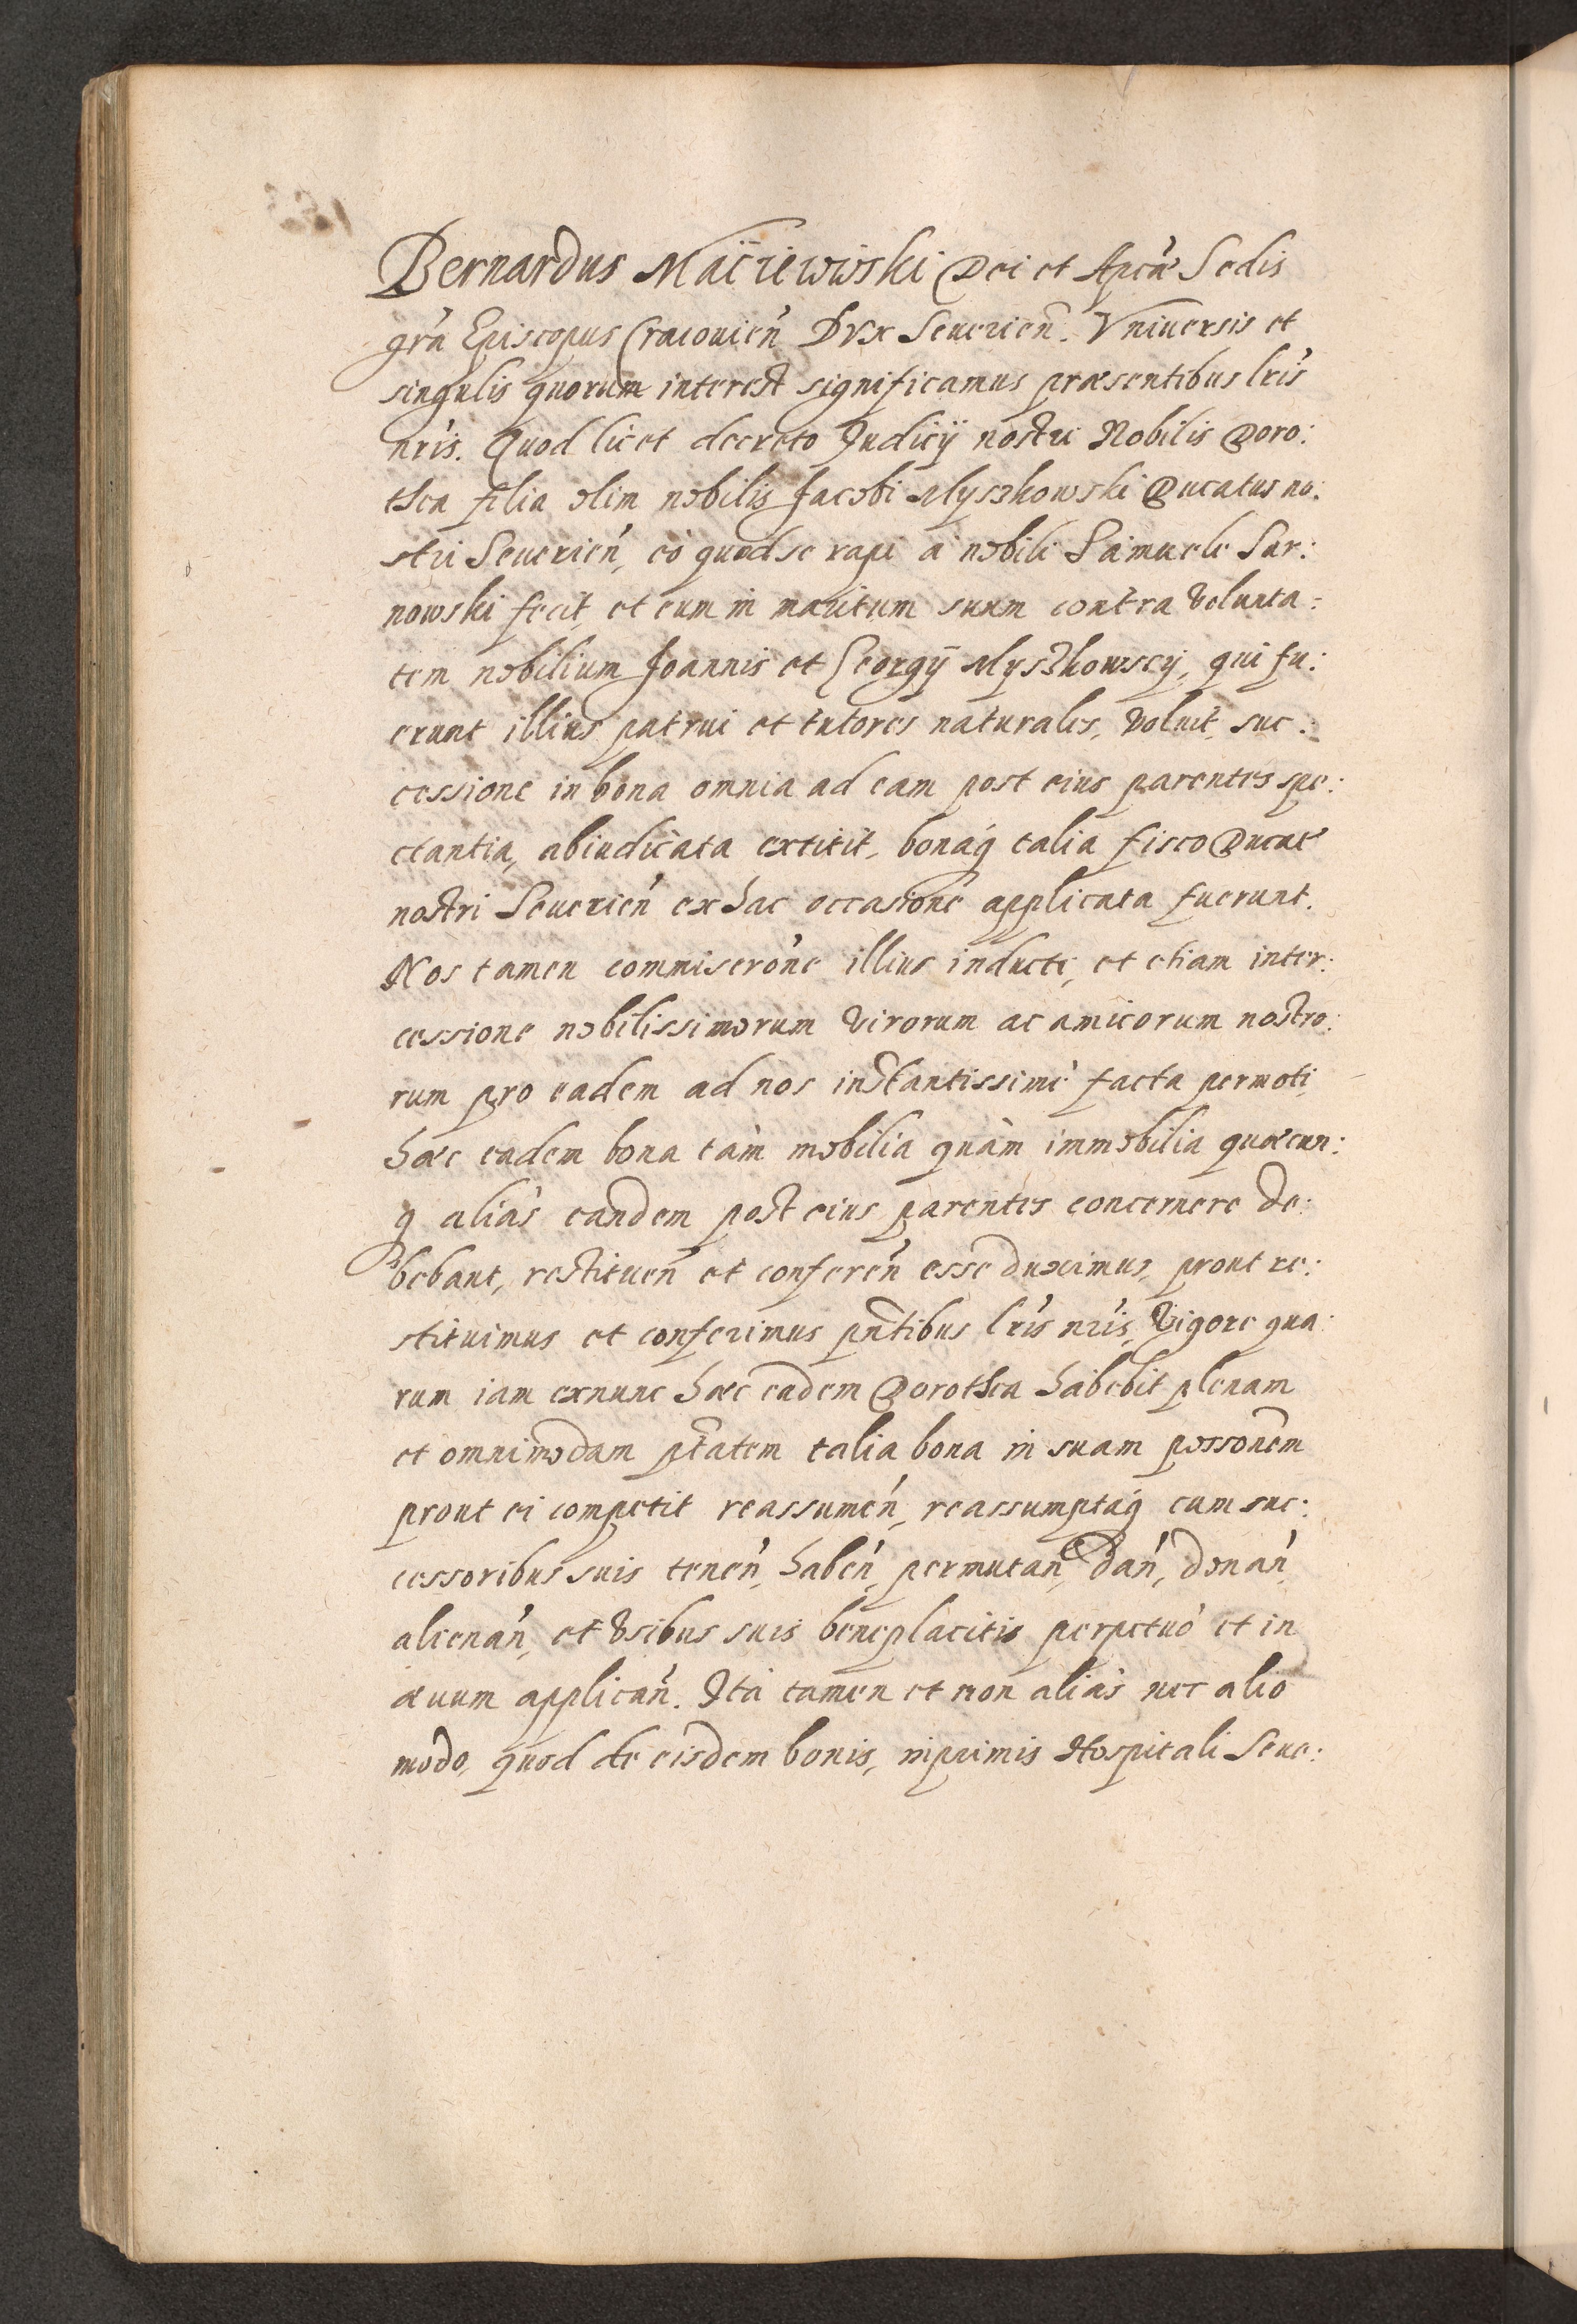 Bernardus Maciiewwski Dei et Apcæ Sedis
gra͂ Episcopus Cracovien̄ Dvx Severien̄. Vniversis et
singulis quorum interest significamus præsentibus lr̄is
nr̄is. Quod licet decreto Judicij nostri Nobilis Doro:
thea filia olim nobilis Jacobi Myszkowski Ducatus no:
stri Severien̄, eò quod se rapi à nobili Samuele Sar:
nowski fecit, et eum in maritum suum contra volunta:
tem nobilium Joannis et Georgij Myszkowscy, qui fu:
erunt illius patrui et tutores naturales, voluit, suc:
cessione in bona omnia ad eam post eius parentes spe:
ctantia, abiudicata extitit, bonaq́ talia fisco Ducat'
nostri Severien̄ ex hac occasione applicata fuerunt.
Nos tamen commiserōne illius inducti, et etiam inter:
cessione nobilissimorum virorum ac amicorum nostro:
rum pro eadem ad nos instantissimè facta permoti,
hæc eadem bona tàm mobilia quàm immobilia quæcun:
q́ aliàs eandem post eius parentes concernere de:
bebant, restituen̄ et conferen̄ esse duximus, prout re:
stituimus et conferimus pn̄tibus lr̄is nr̄is, Vigore qua:
rum iam exnunc hæc eadem Dorothea habebit plenam
et omnimodam pt̄atem talia bona in suam possonēm
prout ei competit reassumen̄, reassumptaq́ cum suc:
cessoribus suis tenen̄, haben̄, permutan̄, dan̄, donan̄,
alienan̄, et vsibus suis beneplacitis perpetuò et in
ævum applican̄. Ità tamen et non aliàs nec alio
modo, quod de eisdem bonis, inprimis Hospitali Seve: